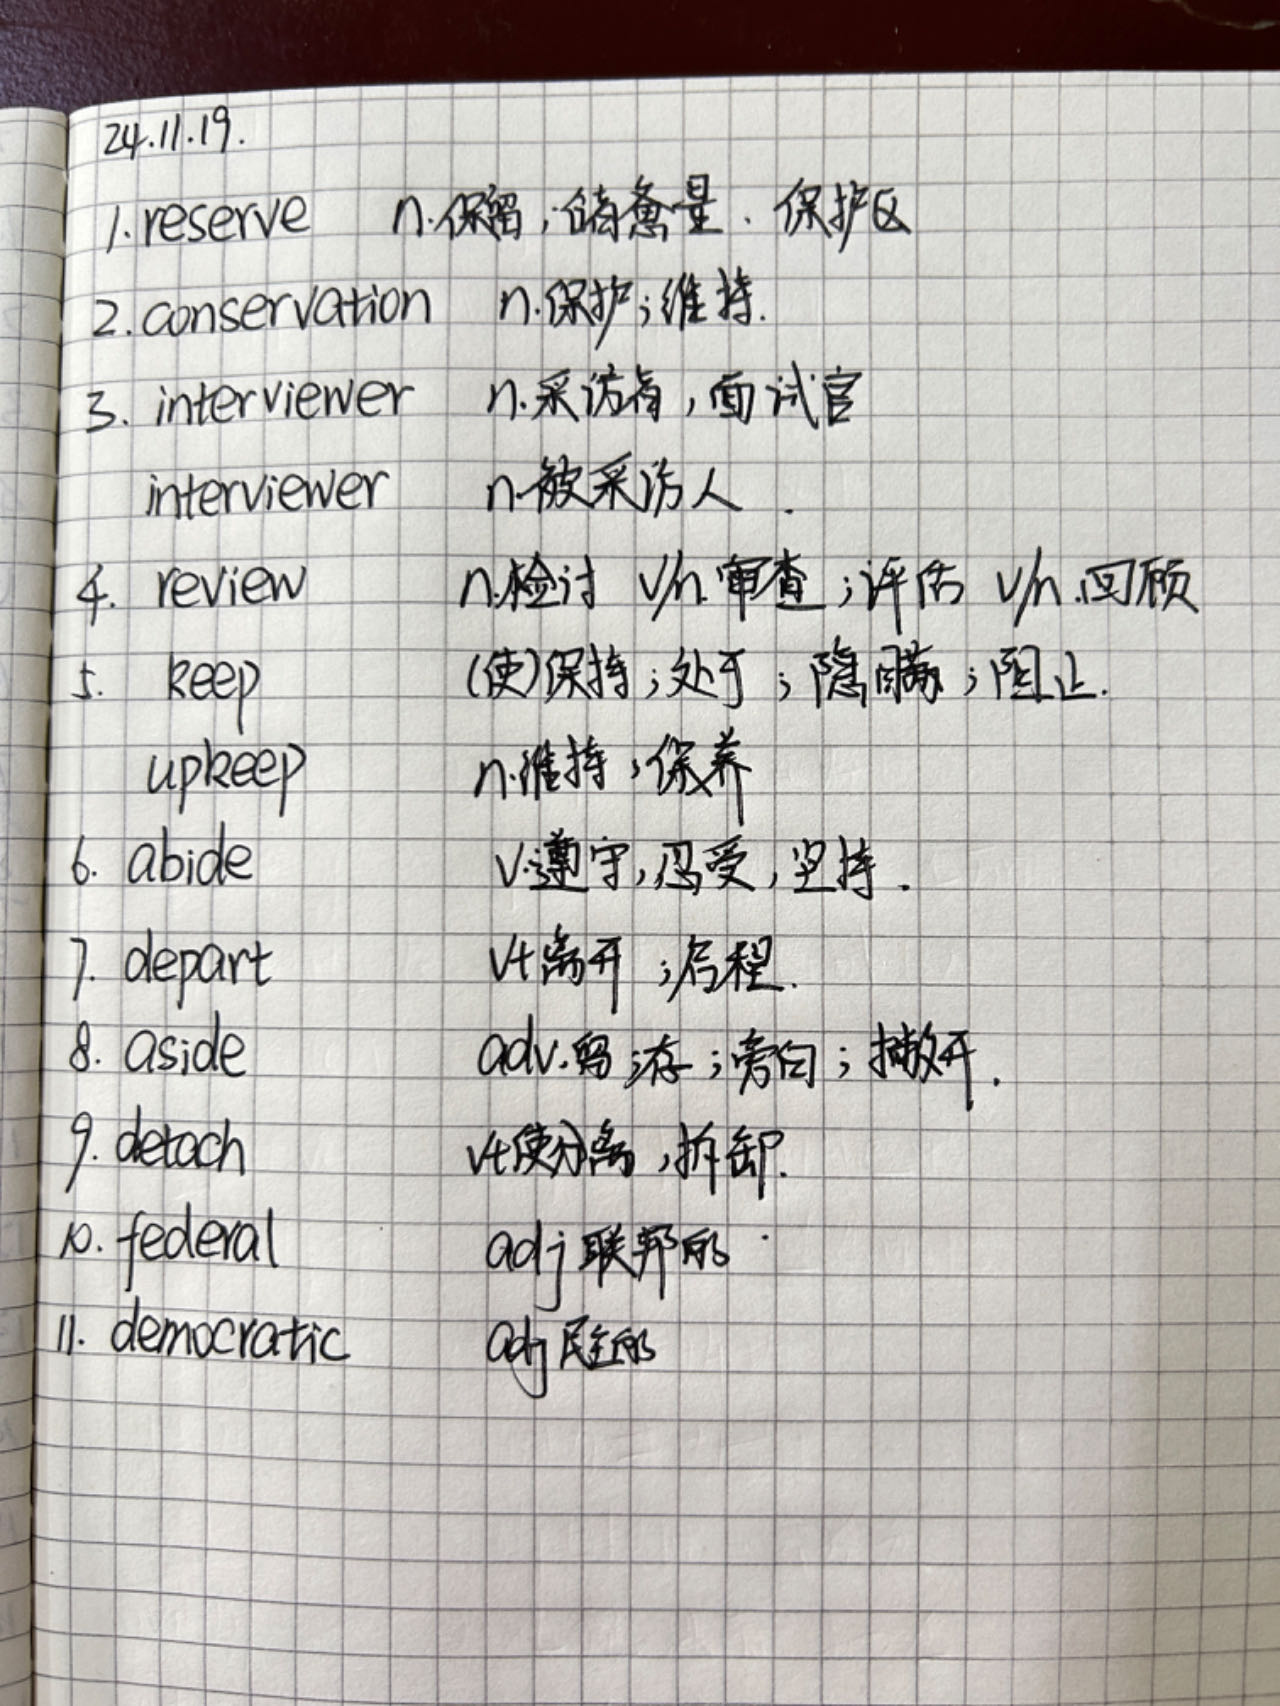 24.11.19.
1. reserve n.保留；储备量．保护区
2. conservation n.保护；维持．
3. interviewer n.采访者，面试官
interviewer n.被采访人．
4. review n.检讨 v/n.审查；评估 v/n.回顾
5. keep (使)保持；处于；隐瞒；阻止．
upkeep n.维持；保养
6. abide v.遵守，忍受，坚持．
7. depart vt离开；启程．
8. aside adv.  ；存；旁白；撇开．
9. detach vt使分离，拆卸．
10. federal adj联邦的．
11. democratic adj民主的